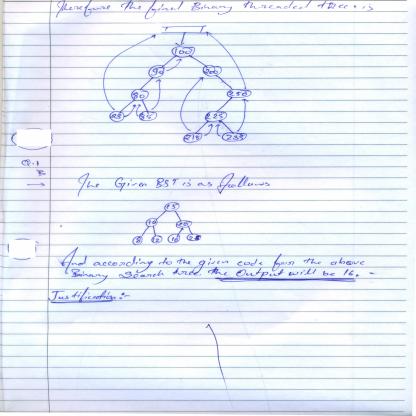 Therefore the final Binary threaded tree is
100
90 200
80 250
85 225
215 235
Q.1
B
→ The Given BST is as follows
15
10 20
8 12 16 25
And according to the given code from the above
Binary Search tree the Output will be 16.
Justification:-